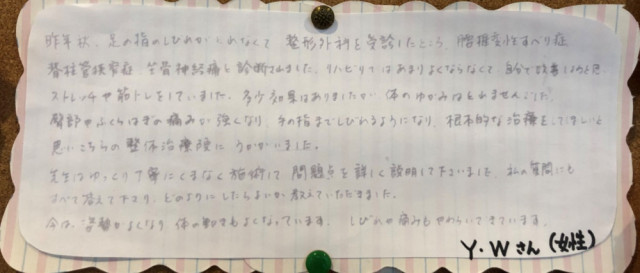 昨年秋、足の指のしびれがとれなくて 整形外科を受診したところ、腰椎変性すべり症
脊柱管狭窄症、坐骨神経痛と診断されました。リハビリではあまりよくならなくて 自分で改善しようと思
ストレッチや筋トレをしていました。多少効果はありましたが 体のゆがみはとれませんでした。
臀部やふくらはぎの痛みが強くなり、手の指までしびれるようになり、根本的な治療をしてほしいと
思いこちらの整体治療院にうかがいました。
先生はゆっくり丁寧にくまなく施術して 問題点を詳しく説明して下さいました。私の質問にも
すべて答えて下さり、どのようにしたらよいか教えていただきました。
今は 姿勢がよくなり 体の動きもよくなっています。しびれや痛みもやわらいできています。
Y・Wさん(女性)